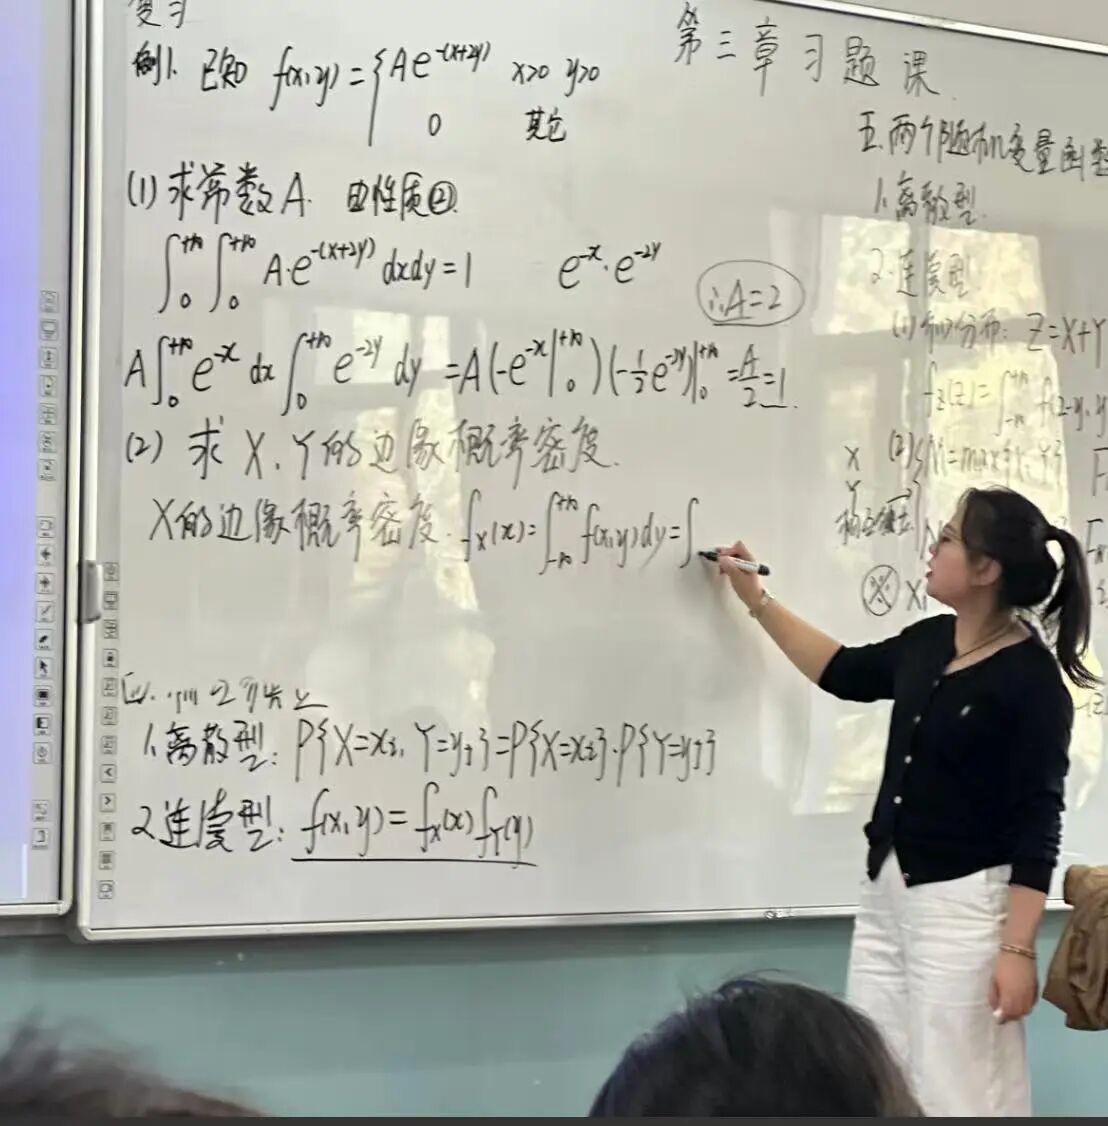 复习
例1. 已知 f(x,y)={Ae^{-(x+2y)} x>0 y>0
0 其它
(1) 求常数A. 由性质②.
∫_0^{+∞}∫_0^{+∞} A·e^{-(x+2y)} dxdy=1 e^{-x}·e^{-2y}
∴A=2
A∫_0^{+∞} e^{-x} dx ∫_0^{+∞} e^{-2y} dy =A(-e^{-x}|_0^{+∞})(-1/2 e^{-2y})|_0^{+∞}=A/2=1.
(2) 求 X、Y的边缘概率密度.
X的边缘概率密度. f_X(x)=∫_{-∞}^{+∞} f(x,y)dy=∫
1.离散型: P{X=xi, Y=yj}=P{X=xi}·P{Y=yj}
2.连续型: f(x,y)=f_X(x)f_Y(y)
第三章习题课.
五.两个随机变量函数
1.离散型.
2.连续型.
(1)和分布: Z=X+Y
f_Z(z)=∫_{-∞}^{+∞} f(z-y,y
(2) M=max{X,Y}